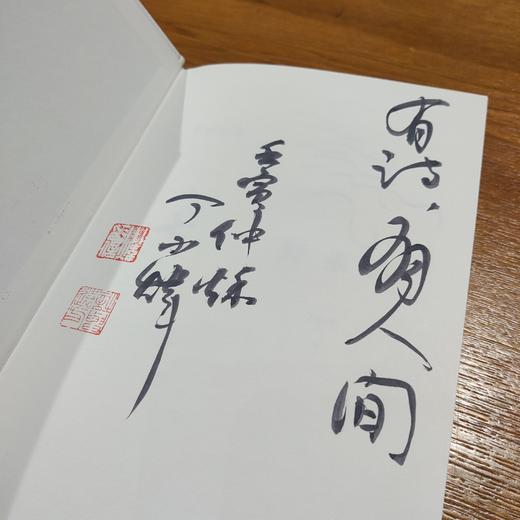 有诗，有人间
壬寅仲秋
丁小炜